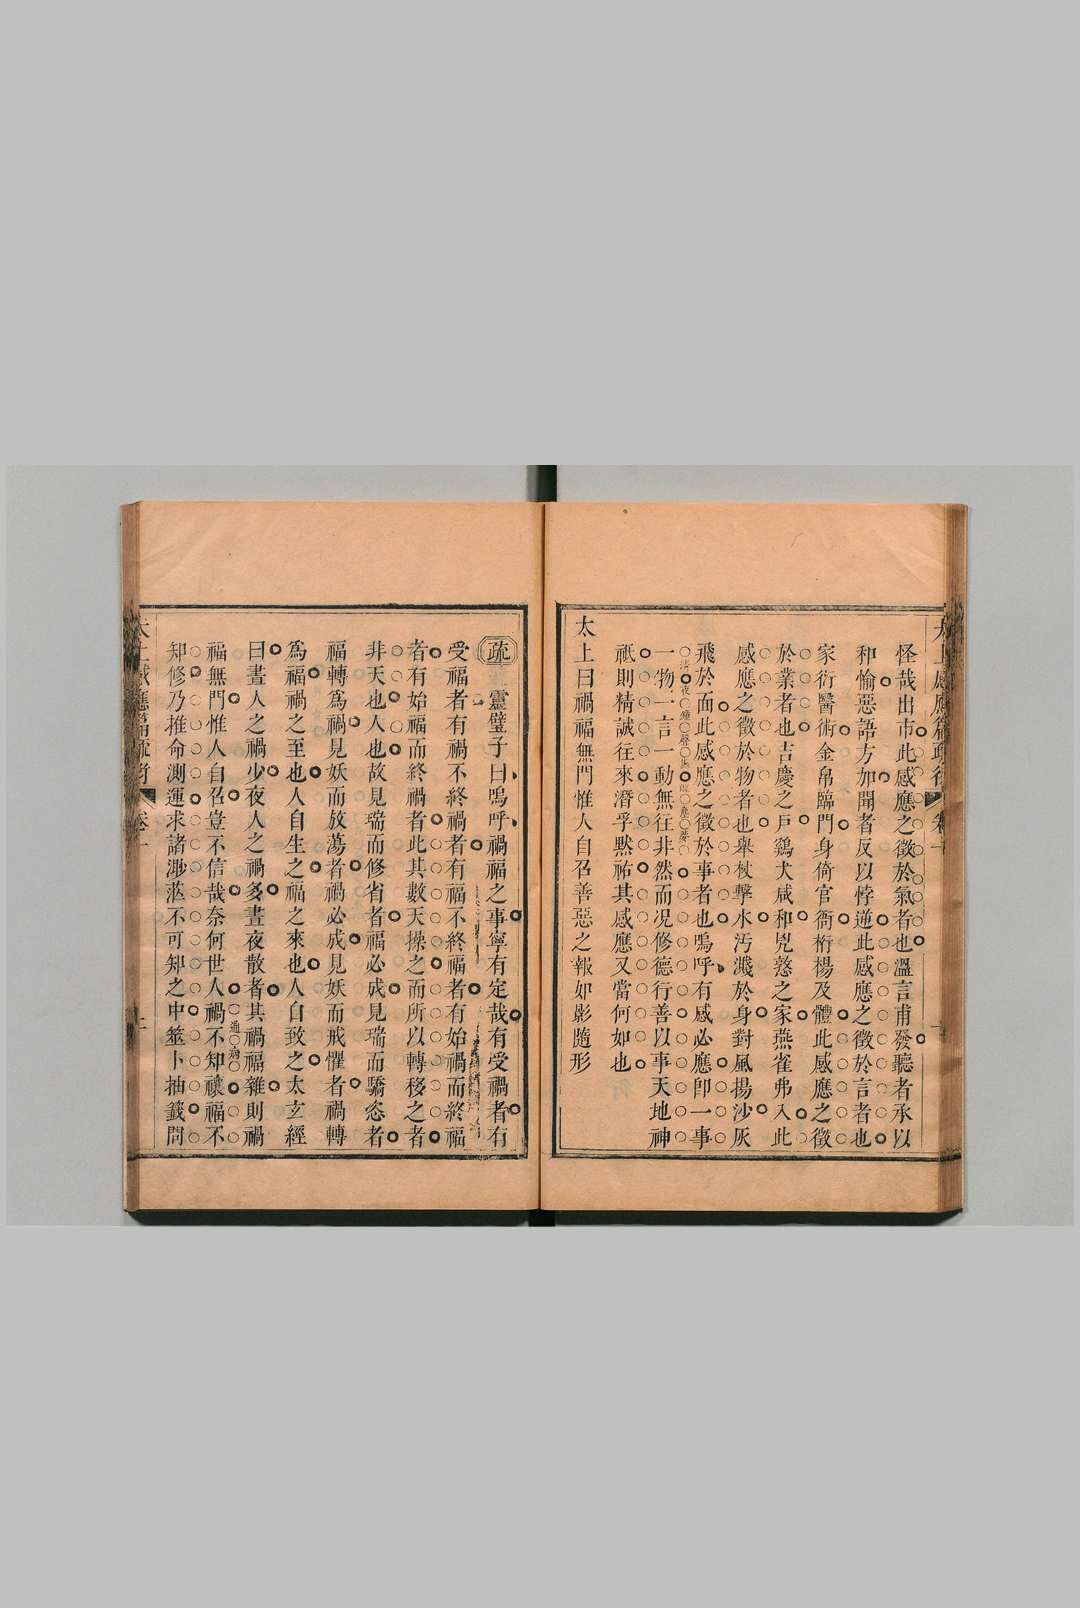 怪哉出市此感應之徵於氣者也溫言甫發聽者承以
和愉惡語方加聞者反以悖逆此感應之徵於言者也
家衍醫術金帛臨門身倚官衙桁楊及體此感應之徵
於業者也吉慶之戶鷄犬咸和兇慝之家燕雀弗入此
感應之徵於物者也舉杖擊水汚濺於身對風揚沙灰
飛於面此感應之徵於事者也嗚呼有感必應卽一事
一物一言一動無往非然而况修德行善以事天地神
祗則精誠往來潛孚黙祐其感應又當何如也
太上曰禍福無門惟人自召善惡之報如影隨形
疏 靈璧子曰嗚呼禍福之事寧有定哉有受禍者有
受福者有禍不終禍者有福不終福者有始禍而終福
者有始福而終禍者此其數天操之而所以轉移之者
非天也人也故見瑞而修省者福必成見瑞而驕忲者
福轉爲禍見妖而放蕩者禍必成見妖而戒懼者禍轉
爲福禍之至也人自生之福之來也人自致之太玄經
曰晝人之禍少夜人之禍多晝夜散者其禍福雜則禍
福無門惟人自召豈不信哉奈何世人禍不知禳福不
知修乃推命測運求諸渺茫不可知之中筮卜抽籤問
太上感應篇疏衍 卷一